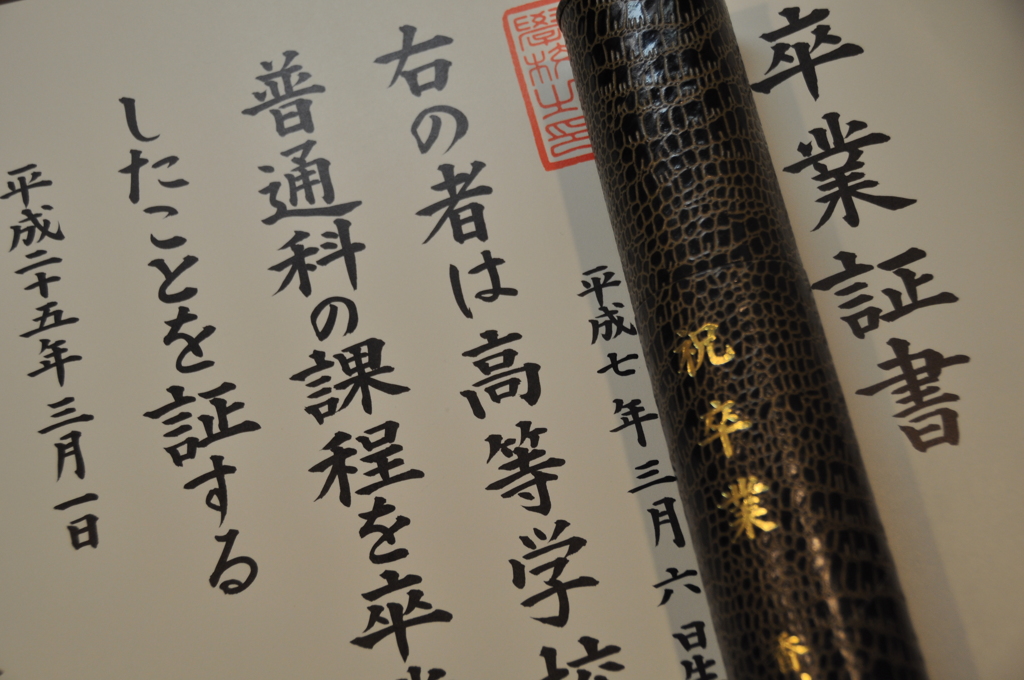 卒業証書
祝卒業
平成七年三月六日生
右の者は高等学校
普通科の課程を卒業
したことを証する
平成二十五年三月一日